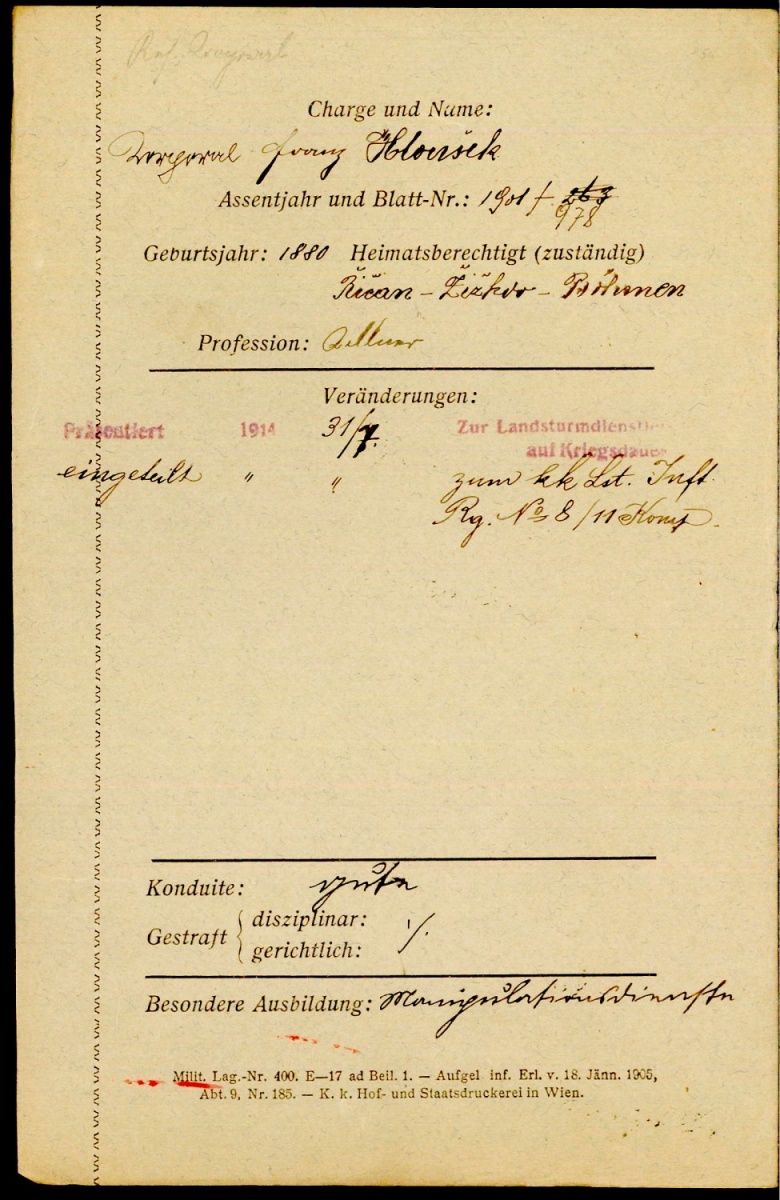 Charge und Name:
Korporal Franz Hloušek
Assentjahr und Blatt-Nr.: 1901 / 263
978
Geburtsjahr: 1880 Heimatsberechtigt (zuständig)
Řičan – Žižkov – Böhmen
Profession: Kellner
Veränderungen:
Präsentiert 1914 31/7. Zur Landsturmdienstle
auf Kriegsdauer
eingeteilt " " zum kk Lst. Inft.
Rg. No 8 / 11 Komp.
Konduite: gute
Gestraft { disziplinar: ٪
gerichtlich:
Besondere Ausbildung: Manipulationsdienste
Milit. Lag.-Nr. 400. E—17 ad Beil. 1. — Aufgel inf. Erl. v. 18. Jänn. 1905,
Abt. 9, Nr. 185. — K. k. Hof- und Staatsdruckerei in Wien.